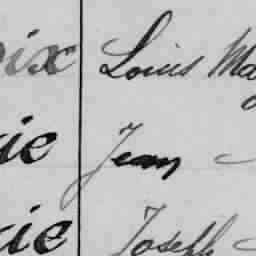 oix Louis Ma
ie Jean
ie Joseph